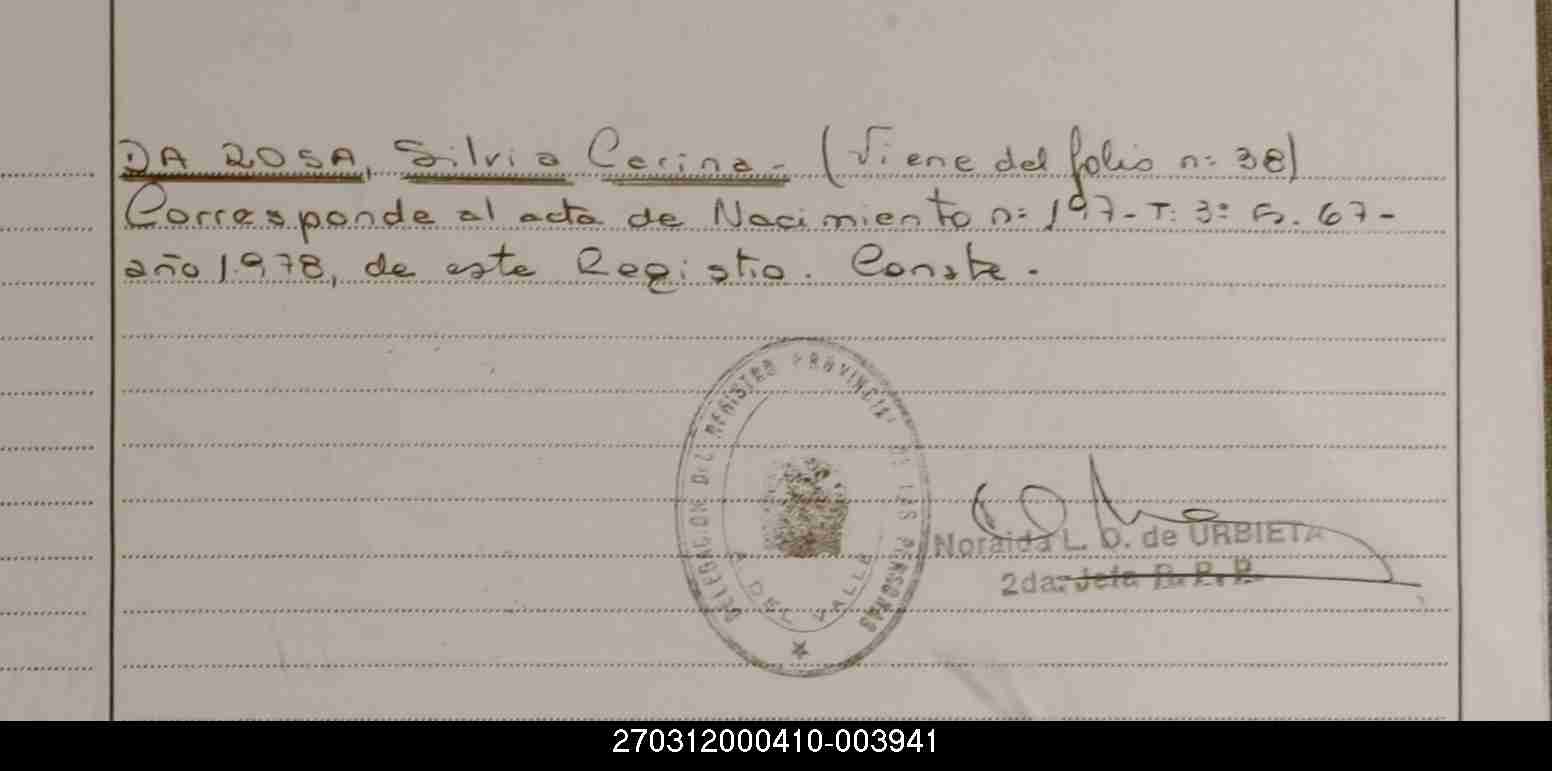 DA ROSA, Silvia Cerina - (Viene del folio n: 38)
Corresponde al acta de Nacimiento n: 197 - T: 3º Fº. 67 -
año 1.978, de este Registro. Conste.
DELEGACION DEL REGISTRO PROVINCIAL DE LAS PERSONAS
A DEL VALLE
Noraida L. D. de URBIETA
2da. Jefa R. P. P.
270312000410-003941